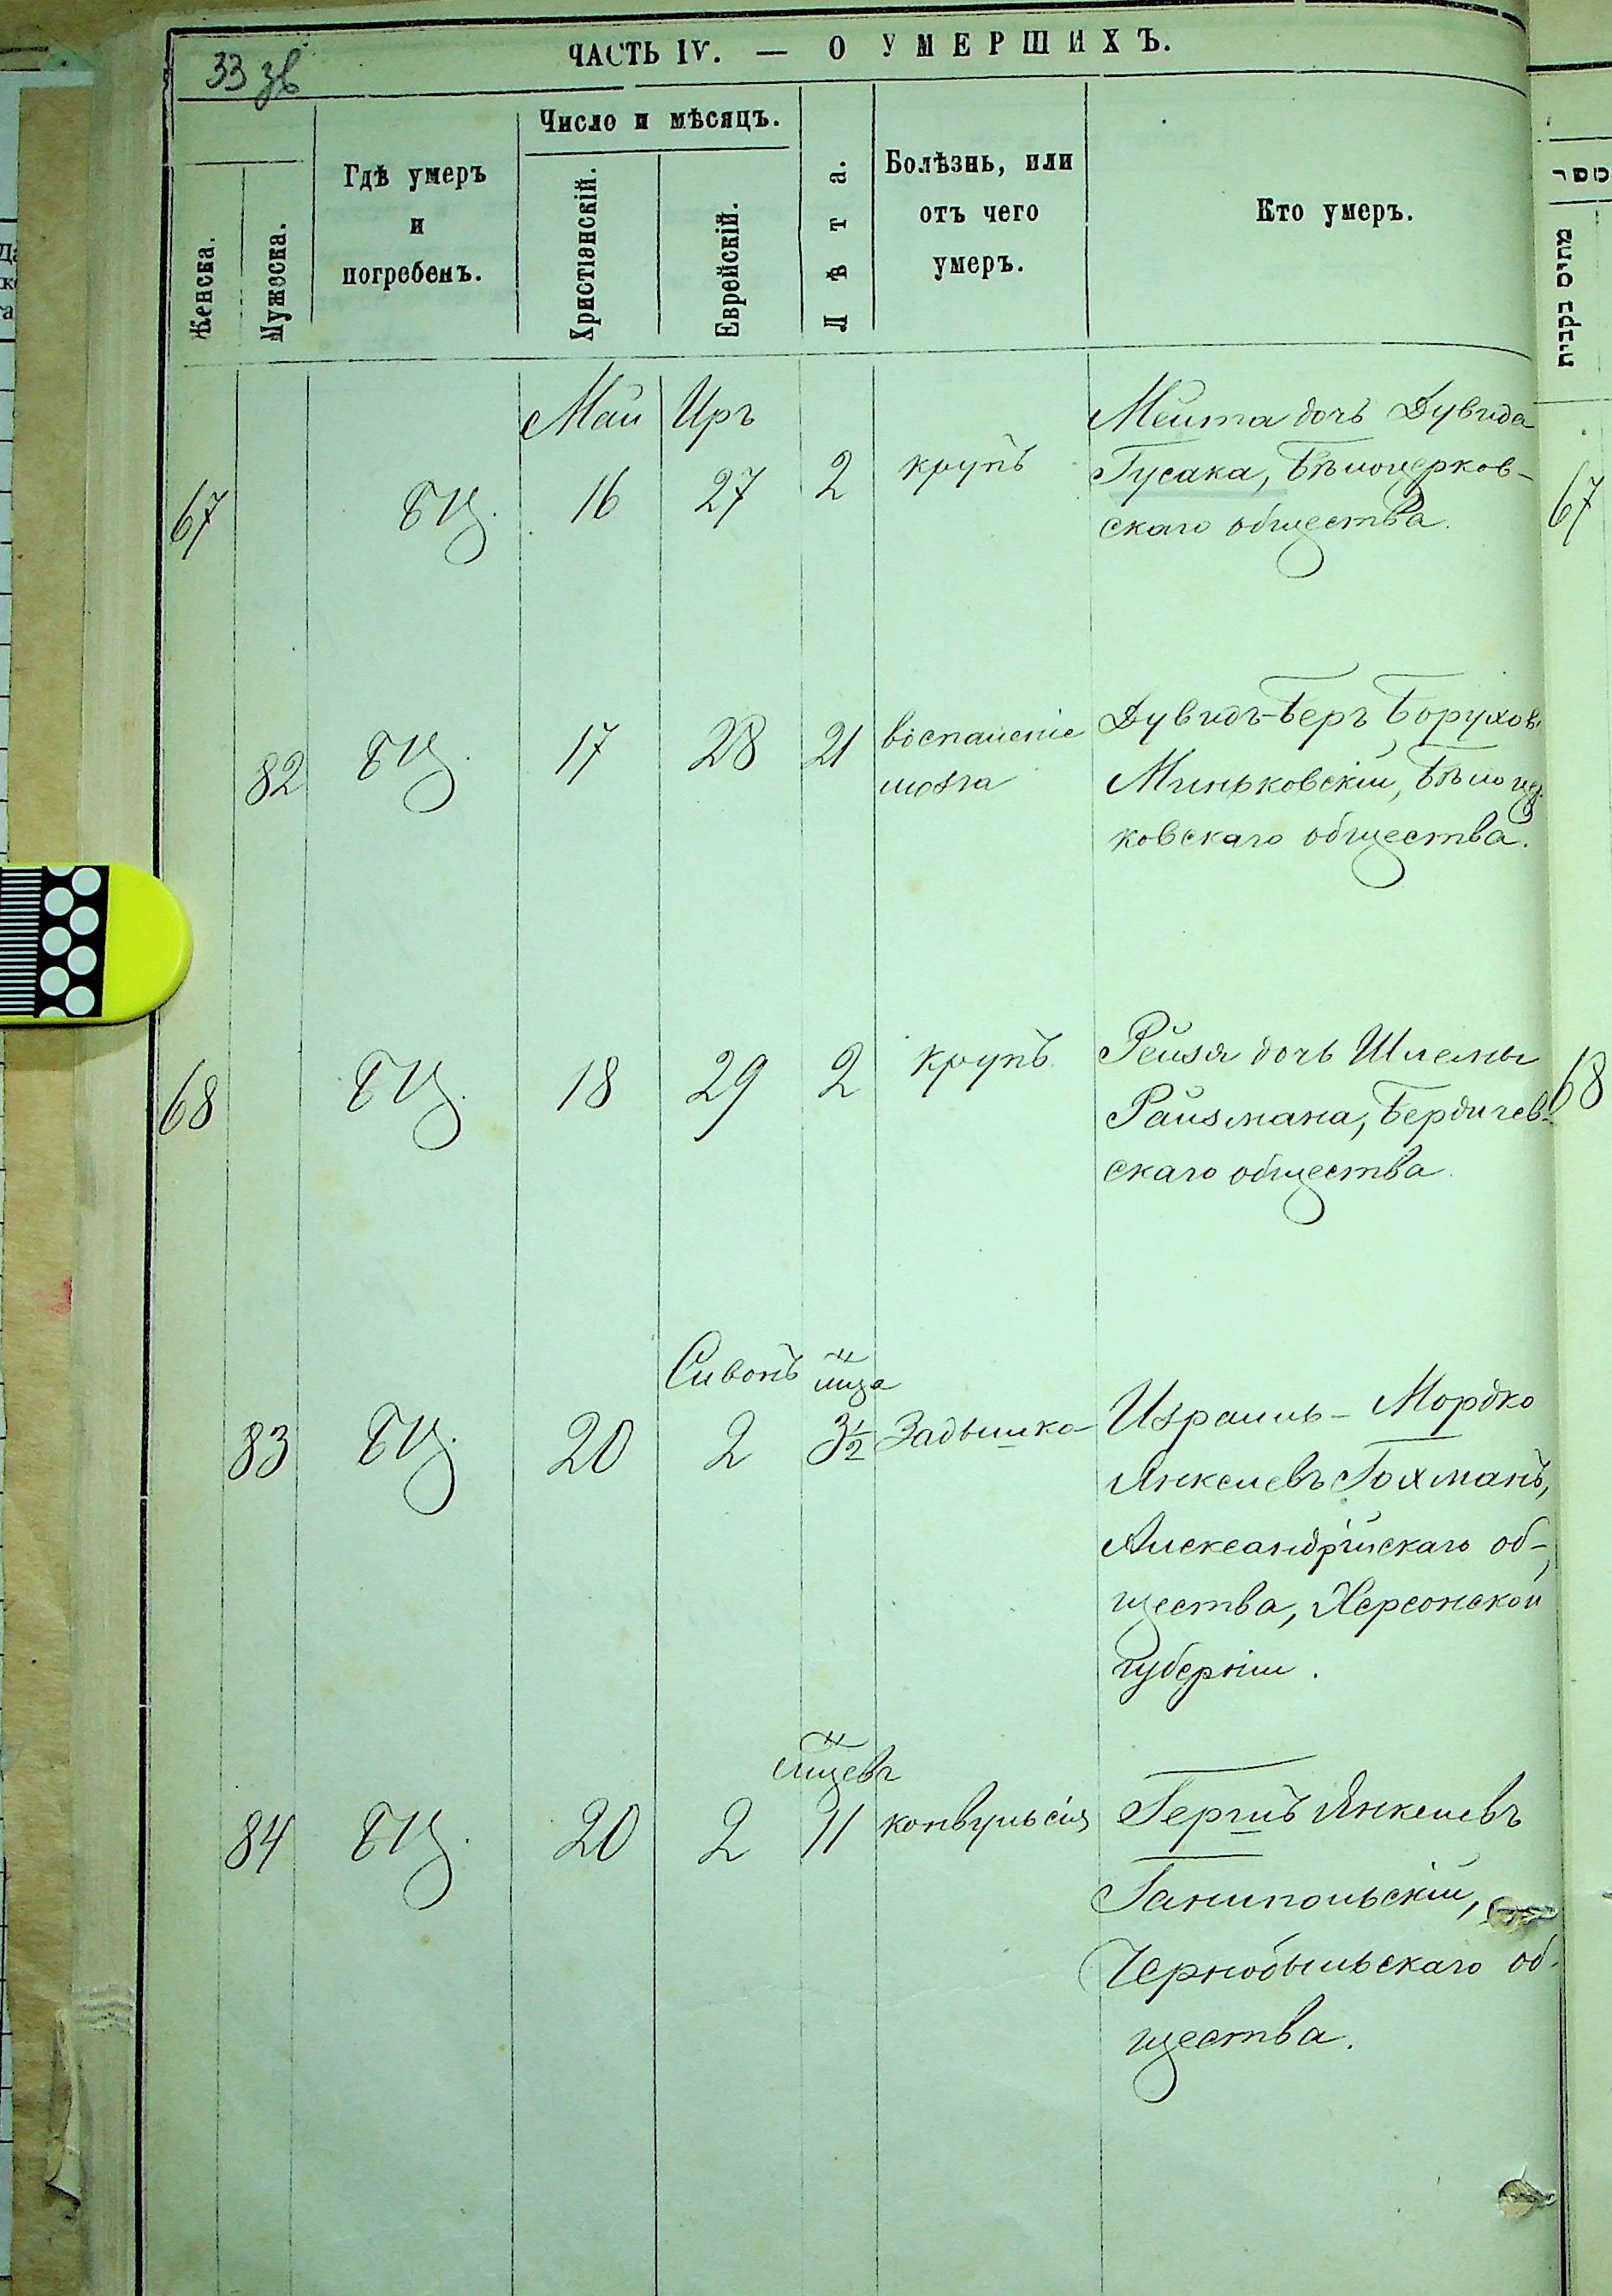 33 зв
ЧАСТЬ IV. — О УМЕРШИХЪ.
Женска.
Мужеска.
Гдѣ умеръ
и
погребенъ.
Число и мѣсяцъ.
Христіанскій.
Еврейскій.
Лѣта.
Болѣзнь, или
отъ чего
умеръ.
Кто умеръ.
מתים בקבית
Май Иръ
67 БЦ. 16 27 2 крупъ
Мейта дочь Дувида
Гусака, Бѣлоцерков-
скаго общества.
67
82 БЦ. 17 28 21 воспаленіе
мозга
Дувидъ-Беръ Борухов
Миньковскій, Бѣлоцер
ковскаго общества.
68 БЦ. 18 29 2 крупъ.
Рейзя дочь Шлемы
Райзмана, Бердичев-
скаго общества.
68
Сивонъ мца
83 БЦ. 20 2 3½ Задышка
Израиль-Мордко
Янкелевъ Гохманъ,
Александрійскаго об-
щества, Херсонской
губерніи.
мцевъ
84 БЦ. 20 2 11 конвульсія
Гершъ Янкелевъ
Ганипольскій,
Чернобыльскаго об-
щества.